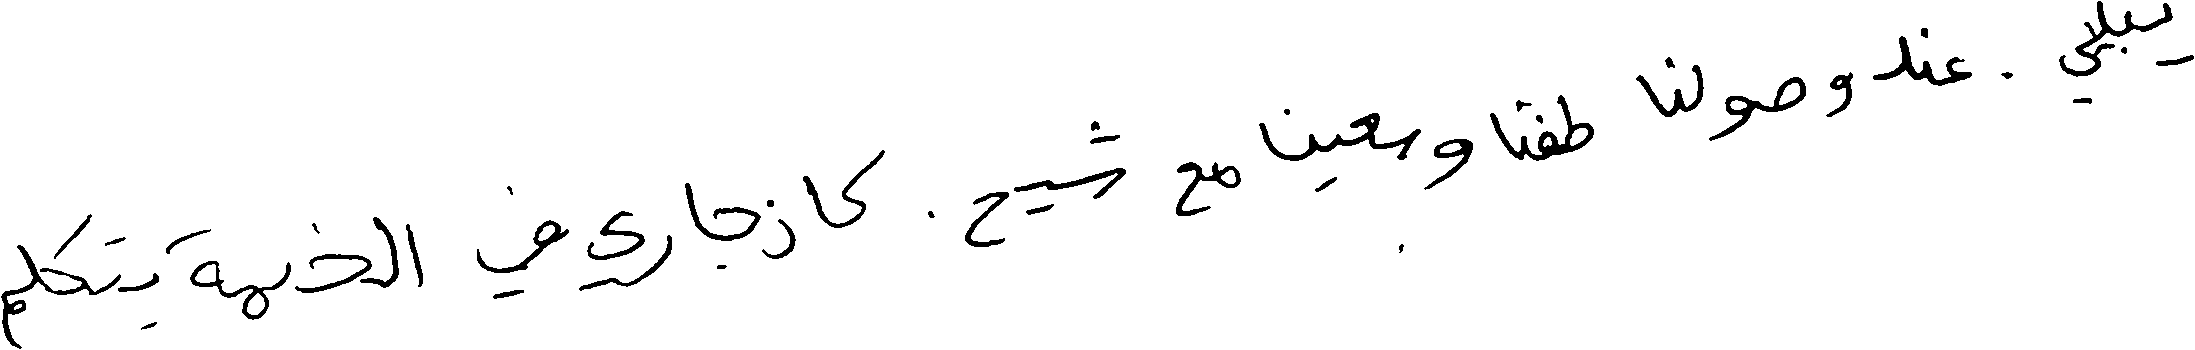 يبلي . عند وصولنا طفنا وسعينا مع شيخ . كان جاري في الخيمة يتكلم